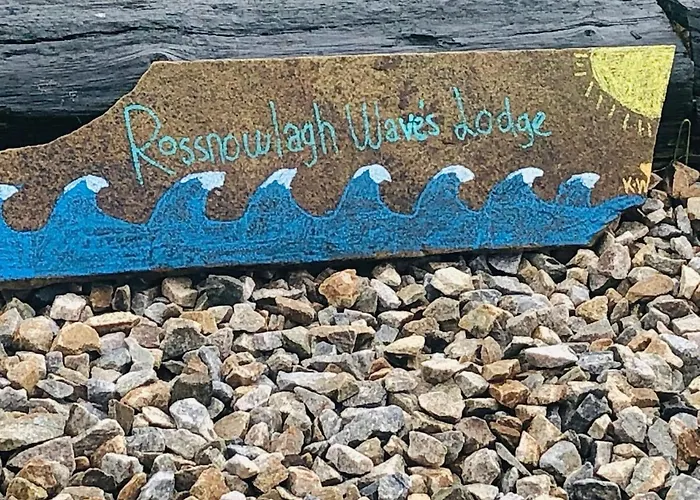 Rossnowlagh Wave's Lodge
KW